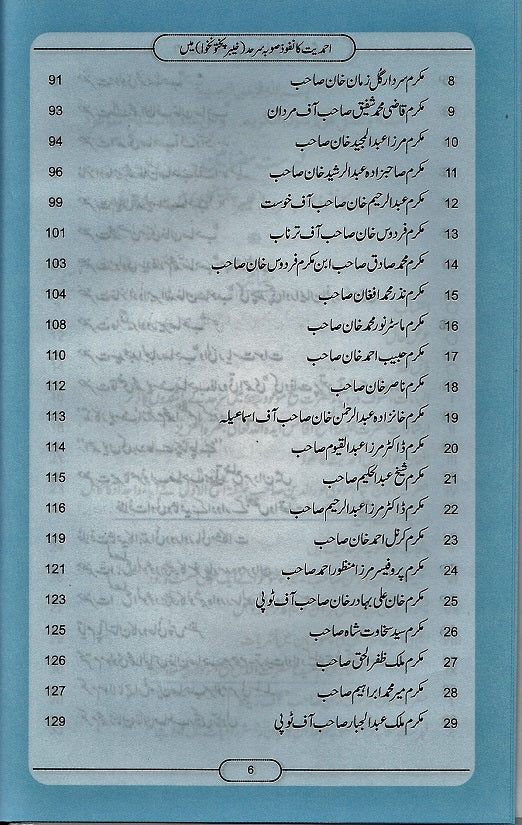 احمدیت کا نفوذ صوبہ سرحد (خیبر پختونخوا) میں
8 مکرم سردار گل زمان خان صاحب 91
9 مکرم قاضی محمد شفیق صاحب آف مردان 93
10 مکرم مرزا عبدالمجید خان صاحب 94
11 مکرم صاحبزادہ عبدالرشید خان صاحب 96
12 مکرم عبدالرحیم خان صاحب آف خوست 99
13 مکرم فردوس خان صاحب آف ترناب 101
14 مکرم محمد صادق صاحب ابن مکرم فردوس خان صاحب 103
15 مکرم نذر محمد افغان صاحب 104
16 مکرم ماسٹر نور محمد خان صاحب 108
17 مکرم حبیب احمد خان صاحب 110
18 مکرم ناصر خان صاحب 112
19 مکرم خانزادہ عبدالرحمٰن خان صاحب آف اسماعیلہ 113
20 مکرم ڈاکٹر مرزا عبدالقیوم صاحب 114
21 مکرم شیخ عبدالحکیم صاحب 115
22 مکرم ڈاکٹر مرزا عبدالرحیم صاحب 116
23 مکرم کرنل احمد خان صاحب 119
24 مکرم پروفیسر مرزا منظور احمد صاحب 121
25 مکرم خان علی بہادر خان صاحب آف ٹوپی 123
26 مکرم سید سخاوت شاہ صاحب 125
27 مکرم ملک ظفر الحق صاحب 126
28 مکرم میر محمد ابراہیم صاحب 127
29 مکرم ملک عبدالجبار صاحب آف ٹوپی 129
6